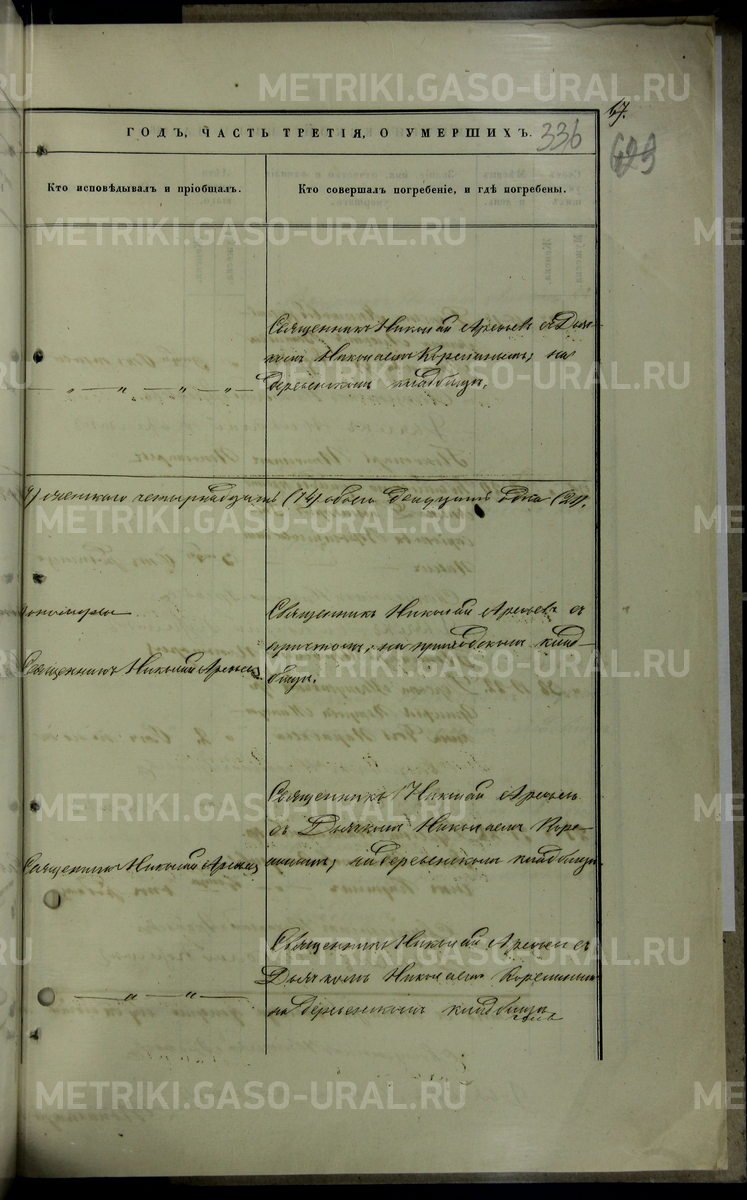 METRIKI.GASO-URAL.RU
67.
ГОДЪ, ЧАСТЬ ТРЕТІЯ, О УМЕРШИХЪ.
336
Кто исповѣдывалъ и пріобщалъ.
Кто совершалъ погребеніе, и гдѣ погребены.
METRIKI.GASO-URAL.RU
Священникъ Николай Арефьевъ съ Дьяч-
комъ Николаемъ на
деревенскомъ кладбищѣ.
METRIKI.GASO-URAL.RU
женскаго четырнадцать (14) обоего двадцать одна (21).
METRIKI.GASO-URAL.RU
Священникъ Николай Арефьевъ съ
причтомъ, на приходскомъ клад-
бищѣ.
Священникъ Николай Арефьевъ
METRIKI.GASO-URAL.RU
Священникъ Николай Арефьевъ
съ Дьячкомъ Николаемъ
на деревенскомъ кладбищѣ.
Священникъ Николай Арефьевъ
METRIKI.GASO-URAL.RU
Священникъ Николай Арефьевъ съ
Дьячкомъ Николаемъ
на деревенскомъ кладбищѣ
METRIKI.GASO-URAL.RU